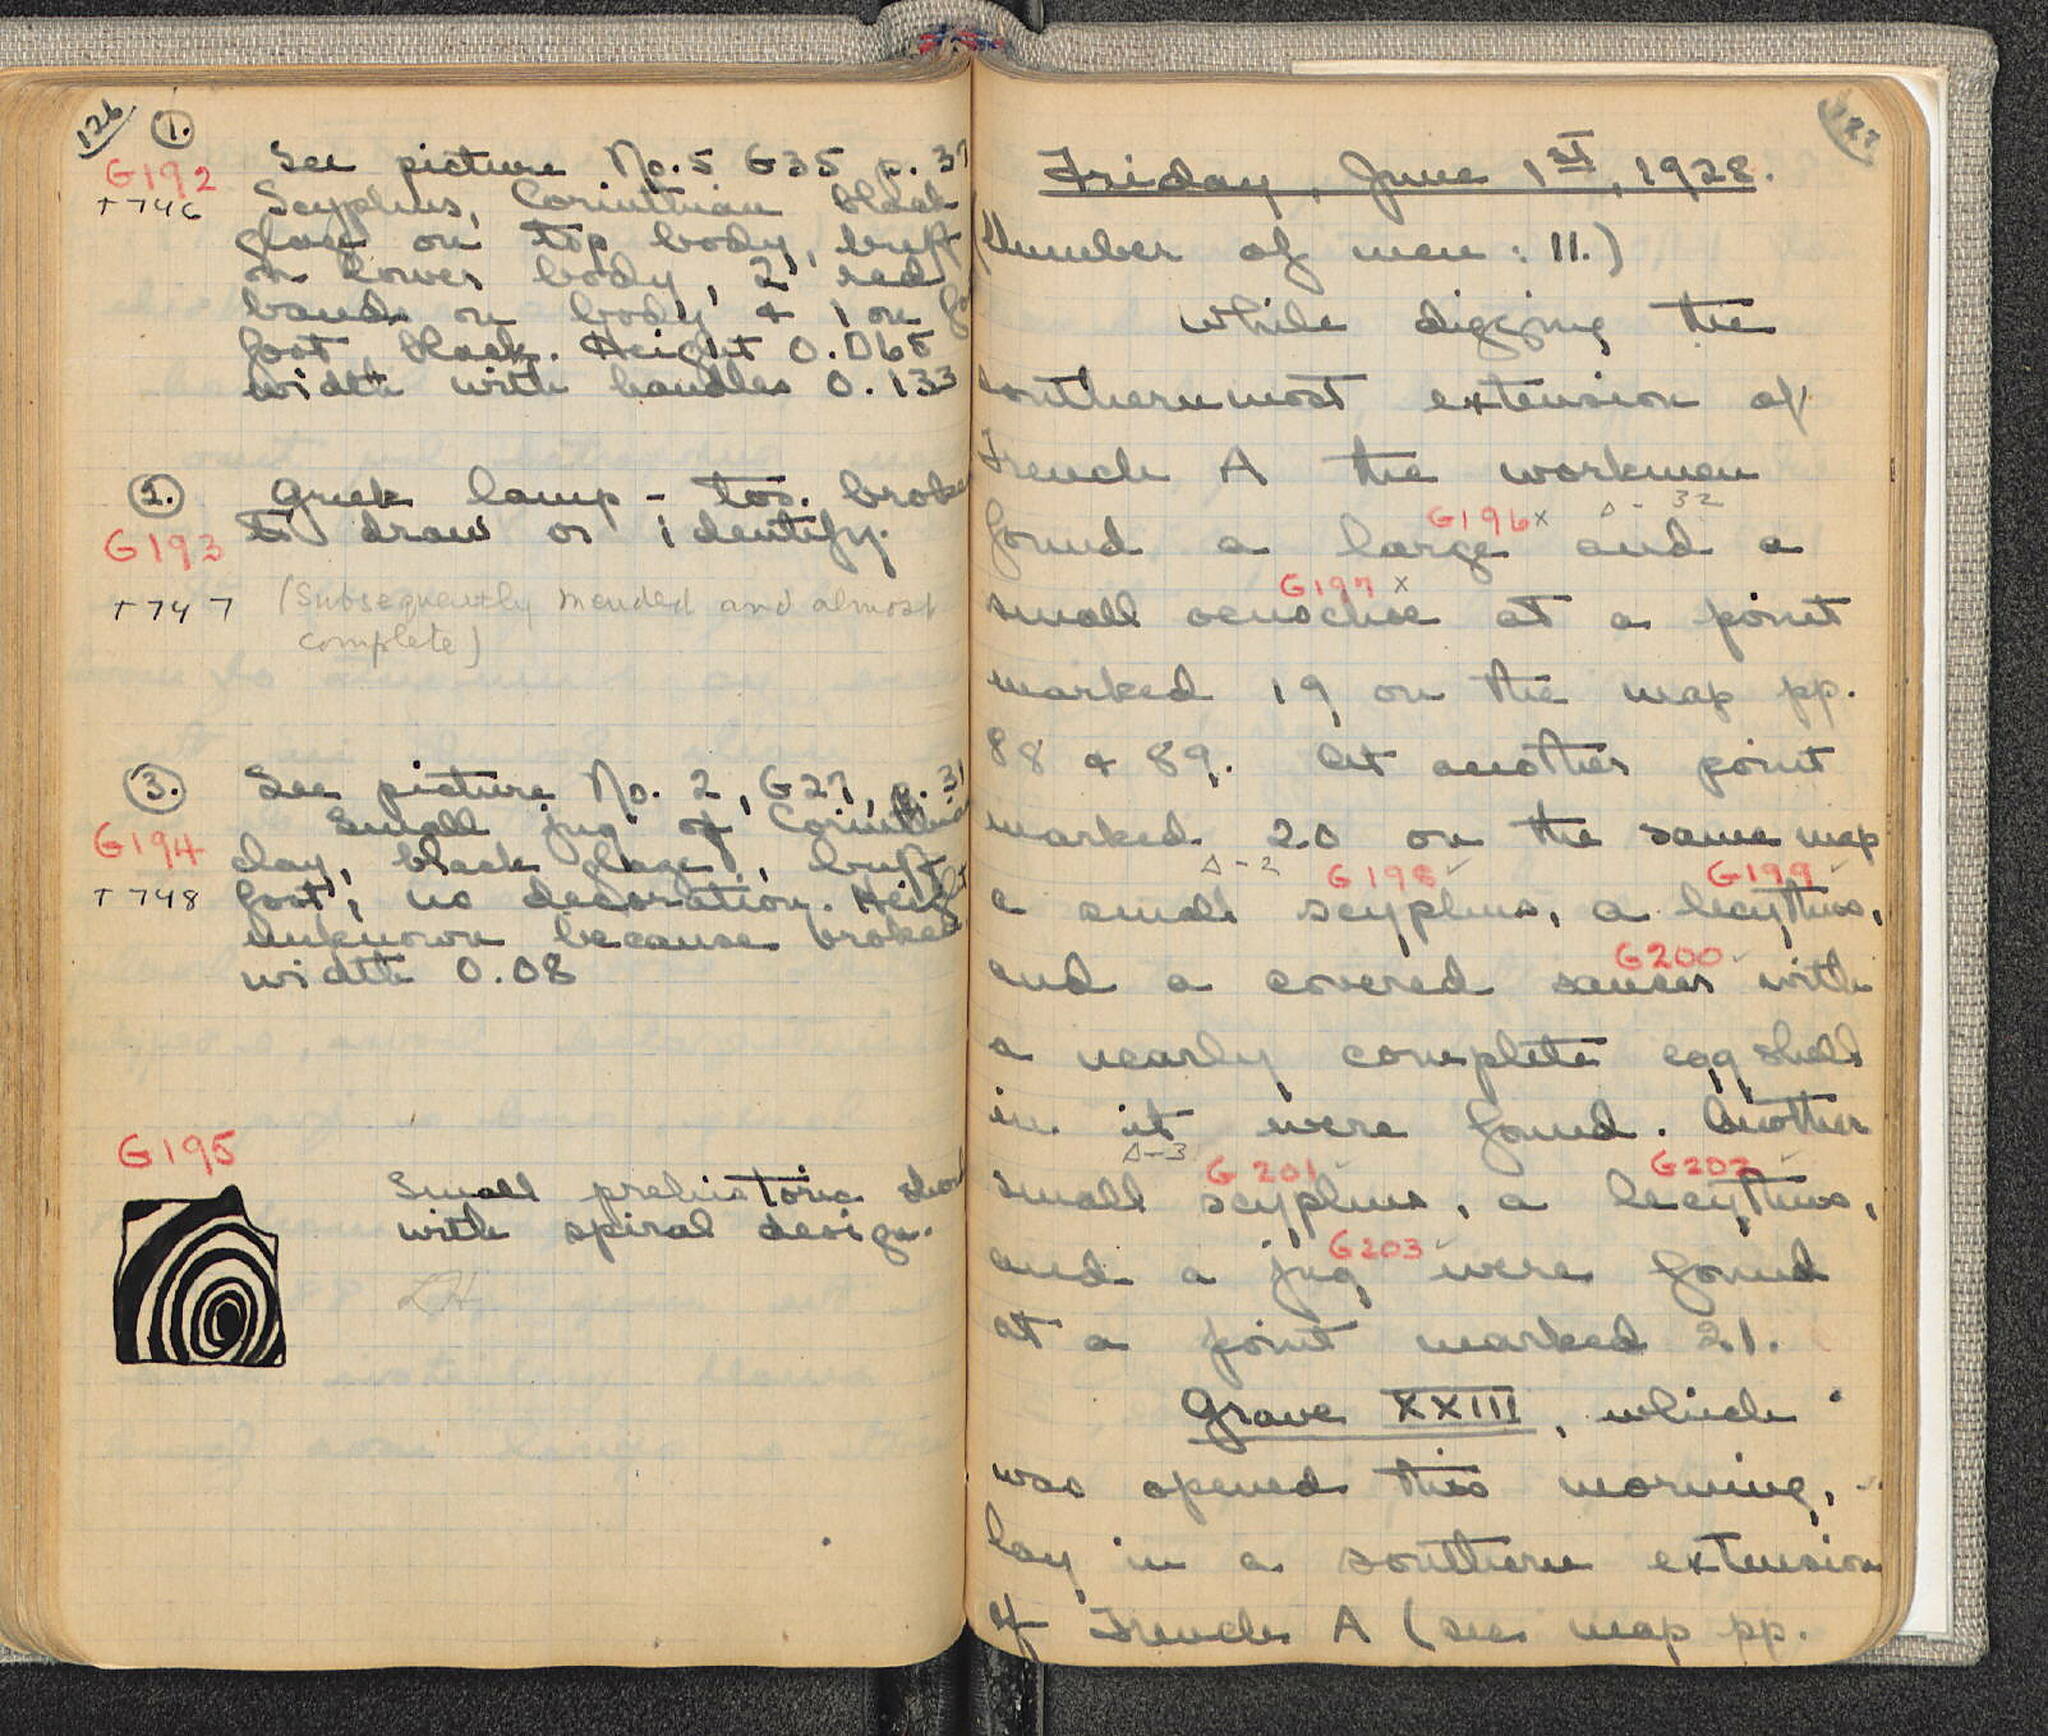 126
1.
G192
T746
See picture No. 5 G35 p. 37
Scyphus, Corinthian black
glaze on top body, buff
on lower body, 2 red
bands on body & 1 on
foot black. Height 0.065
width with handles 0.133
2.
G193
T747
Greek lamp - too broke
to draw or identify.
(Subsequently mended and almost
complete)
3.
G194
T748
See picture No. 2, G27, p. 31
Small jug of Corinthian
clay, black glaze, buff
foot, no decoration. Height
unknown because broken
width 0.08
G195
Small prehistoric sherd
with spiral design.
LH
127
Friday, June 1st, 1928.
(Number of men : 11.)
While digging the
southernmost extension of
Trench A the workmen
G196 x Δ-32
found a large and a
G197 x
small oenochoe at a point
marked 19 on the map pp.
88 & 89. At another point
marked 20 on the same map
Δ-2 G198 G199
a small scyphus, a lecythus,
G200
and a covered saucer with
a nearly complete egg shell
in it were found. Another
Δ-3 G201 G202
small scyphus, a lecythus,
G203
and a jug were found
at a point marked 21.
Grave XXIII, which
was opened this morning,
lay in a southern extension
of Trench A (see map pp.